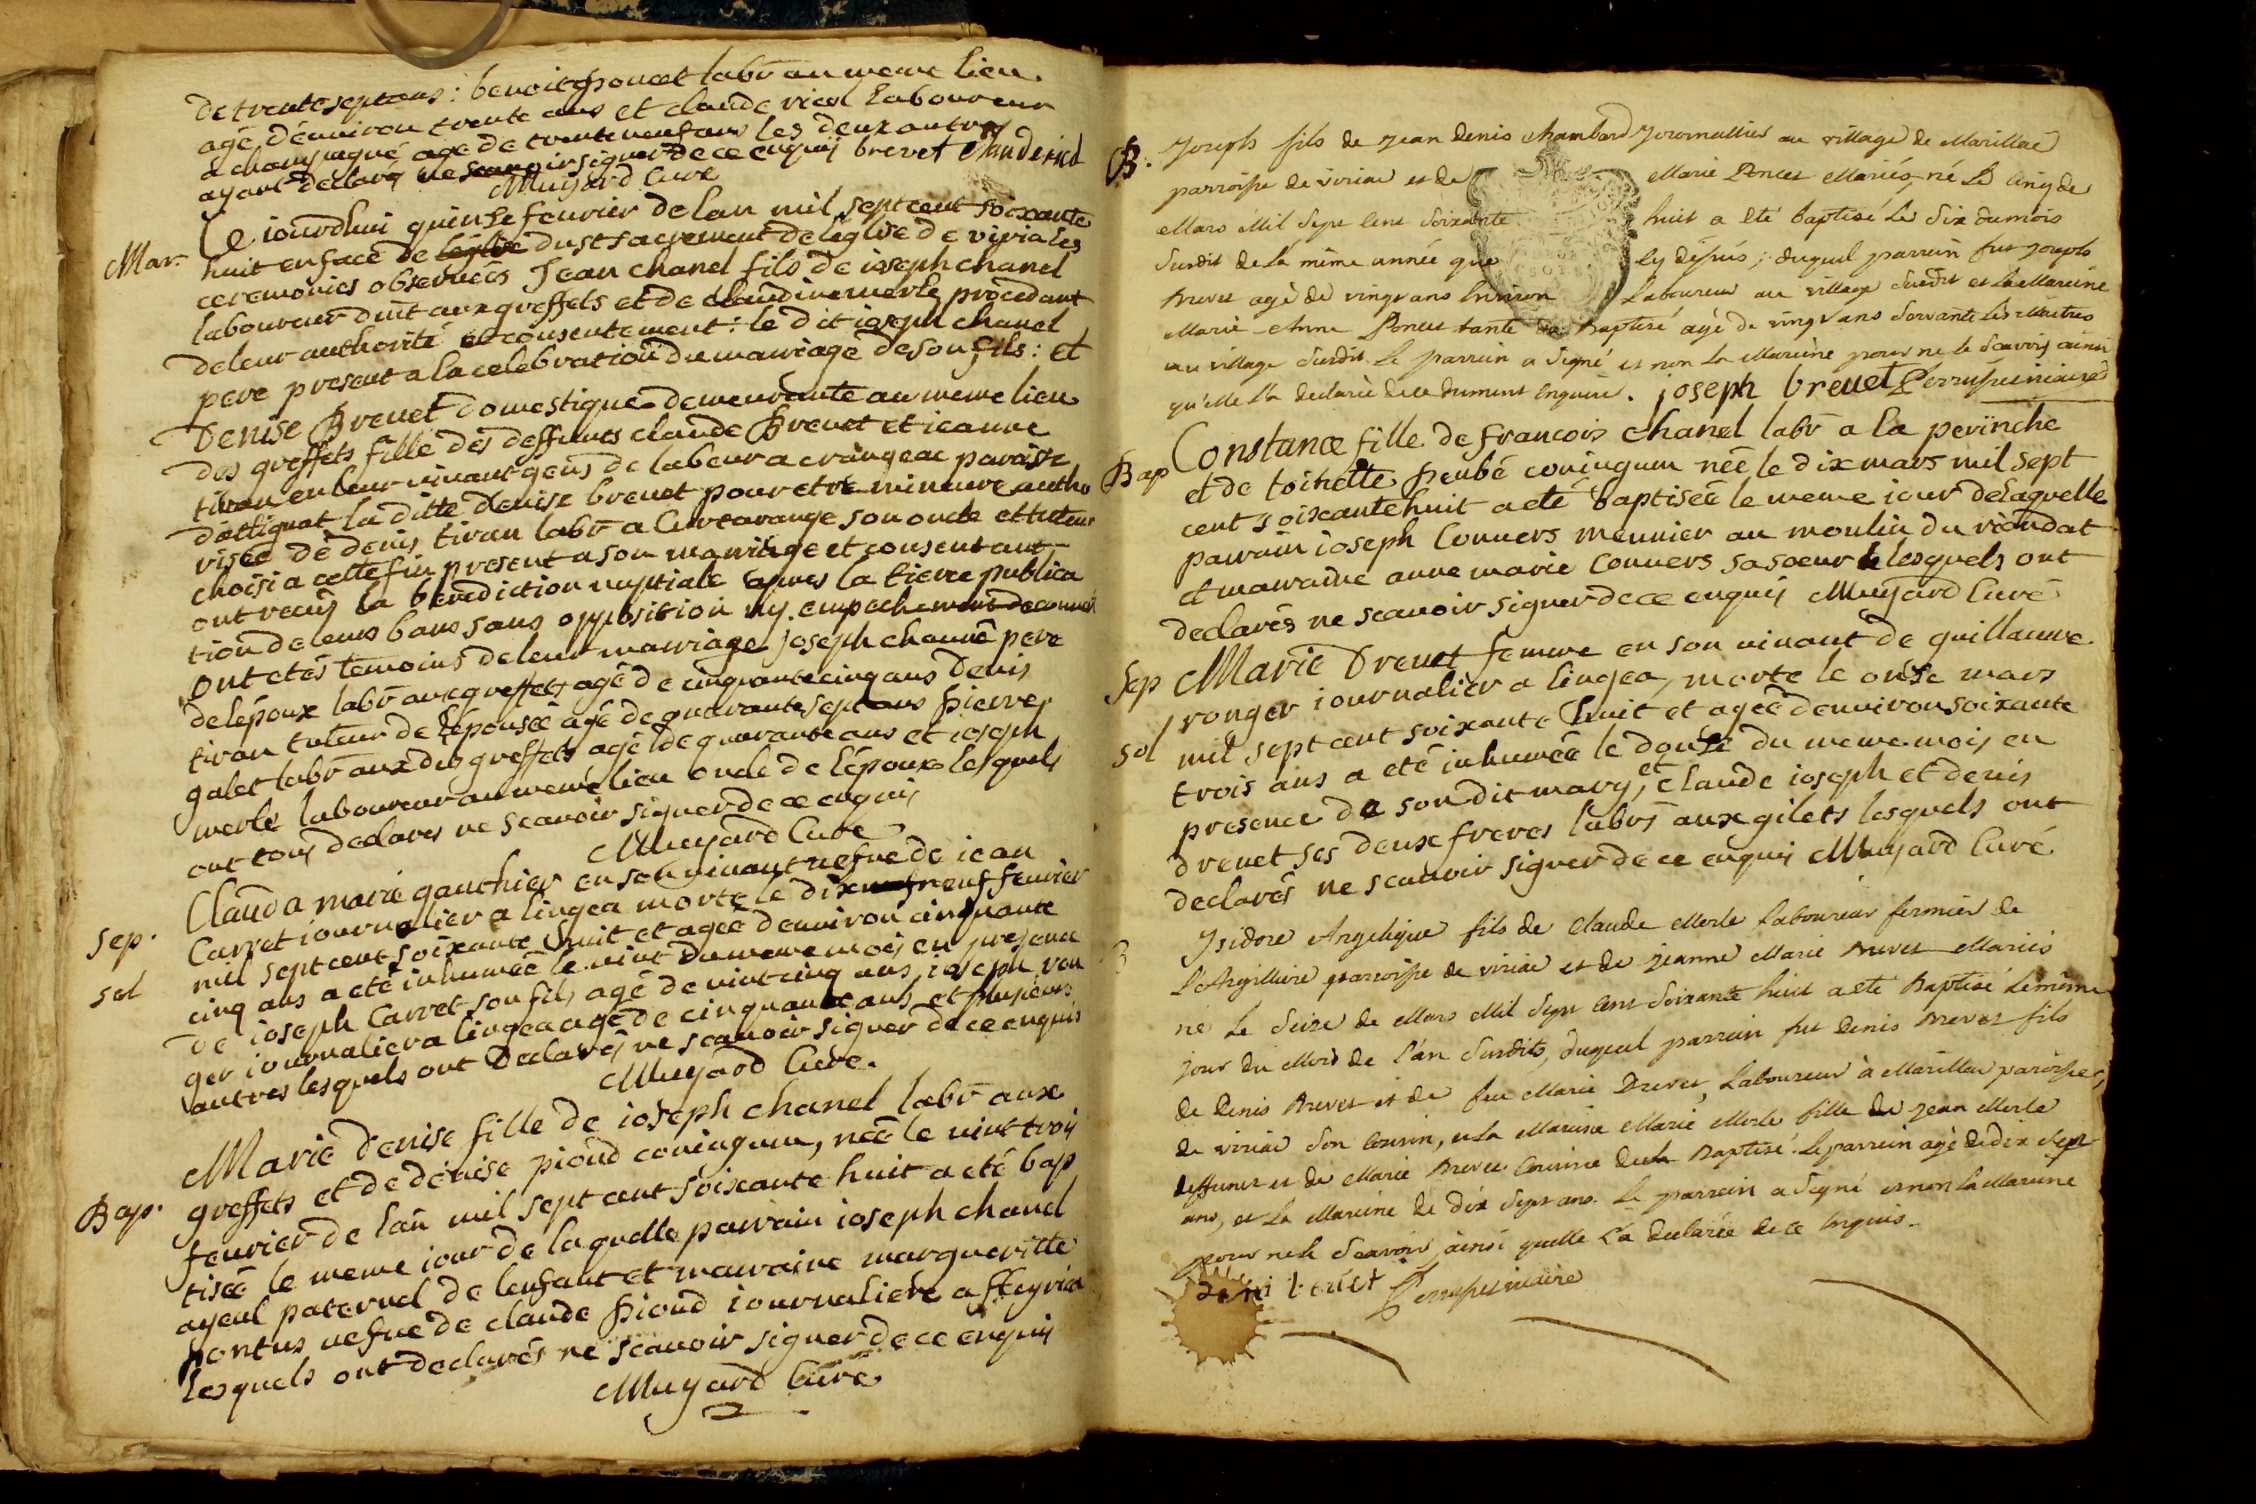 de trente sept ans : benoit poncet labr au meme lieu
agé d'environ trente ans et claude viard laboureur
a champagné agé de trente neuf ans les deux autres
ayant declarés ne scavoir signer de ce enquis brevet
Muyard Curé
Mar.
Ce iourdhui quinse feurier de lan mil sept cent soixante
huit en face de du st sacrement de leglise de viria les
ceremonies observées Jean chanel fils de ioseph chanel
laboureur duit aux greffets et de claudine merle procedant
de leur authorité et consentement : le dit ioseph chanel
pere present a la celebration du mariage de son fils : et
Denise Brevet domestique demeurante au meme lieu
des greffets fille des deffunts claude Brevet et ieanne
tiran en leur vivant gens de labeur a crangeac paroisse
d'attignat la ditte denise brevet pour etre mineure autho
risée de denis tiran labr a Curtarange son oncle et tuteur
choisi a cette fin present a son mariage et consentant
ont recus la benediction nuptiale apres la tierce publica
tion de leurs bans sans opposition ny empechement
ont etés temoins de leur mariage Joseph chanel pere
de lépoux labr aux greffets agé de cinquante cinq ans denis
tiran tuteur de lépousée agé de quarante sept ans pierre
galet labr aux dits greffets agé de quarante ans et ioseph
merle laboureur au meme lieu oncle de lépoux lesquels
ont tous declarés ne scavoir signer de ce enquis
Muyard Curé
sep.
sol
Clauda marie gauthier en son vivant vefve de iean
Carret iournalier a lingea morte le dix neuf feurier
mil sept cent soixante huit et agée d'environ cinquante
cinq ans a eté inhumée le vint du meme mois en presence
de ioseph Carret son fils agé de vint cinq ans, ioseph ron
ger iournalier a lingea agé de cinquante ans et plusieurs
autres lesquels ont declarés ne scavoir signer de ce enquis
Muyard Curé.
Bap.
Marie denise fille de ioseph chanel labr aux
greffets et de denise pioud coniugum, née le vint trois
feurier de lan mil sept cent soixante huit a eté bap
tisée le meme iour de laquelle parrain ioseph chanel
ayeul paternel de lenfant et marraine margueritte
pontus vefve de claude pioud iournaliere a
lesquels ont declarés ne scavoir signer de ce enquis
Muyard Curé
B.
Joseph fils de Jean Denis Chambard Journallier au village de Marillac
parroisse de viriac et de Marie Poncet Mariés, né Le cinq de
Mars Mil Sept Cent Soixante huit a Eté Baptisé Le Six du mois
Susdit de La même année que Cy dessus ; duquel parrein fut Joseph
Brevet agé de vingt ans Environ Laboureur au village Susdit et La Mareine
Marie Anne Poncet tante du Baptisé agée de vingt ans Servante
au village Susdit. Le parrein a Signé et non La Mareine pour ne le Scavoir ainsi
qu'elle L'a declarée de ce dument Enquise. joseph brevet
Bap
Constance fille de francois chanel labr a la perinche
et de toinette peubé coniugum née le dix mars mil sept
cent soixante huit a eté baptisée le meme iour de laquelle
parrain ioseph Convers meunier au moulin du riondat
et marraine anne marie Convers sa soeur lesquels ont
declarés ne scavoir signer de ce enquis Muyard Curé
sep
sol
Marie Drevet femme en son vivant de guillaume
ronger iournalier a lingea, morte le onse mars
mil sept cent soixante huit et agée d'environ soixante
trois ans a eté inhumée le douse du meme mois en
presence de son dit mary, et Claude ioseph et denis
drevet ses deux freres labrs aux gilets lesquels ont
declarés ne scavoir signer de ce enquis Muyard Curé
Isidore Angelique fils de Claude Merle Laboureur fermier de
L'Argilliere parroisse de viriac et de Jeanne Marie Brevet Mariés
né Le Seize de Mars Mil Sept Cent Soixante huit a eté Baptisé Le même
jour du Mois de L'an Susdits, duquel parrein fut Denis Brevet fils
de Denis Brevet et de feu Marie Drevet, Laboureur à Marillac paroisse
de viriac Son Cousin, et La Mareine Marie Merle fille de Jean Merle
deffunct et de Marie Brevet Cousine du Baptisé. Le parrein agé de dix Sept
ans, et La Mareine de dix Sept ans. Le parrein a Signé et non La Mareine
pour ne le Scavoir, ainsi quelle L'a declarée de ce Enquis.